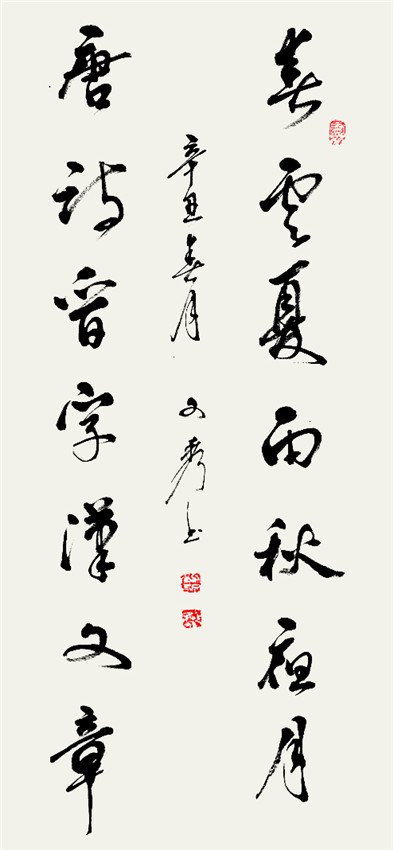 春雲夏雨秋夜月
唐詩晉字漢文章
辛丑春月
文